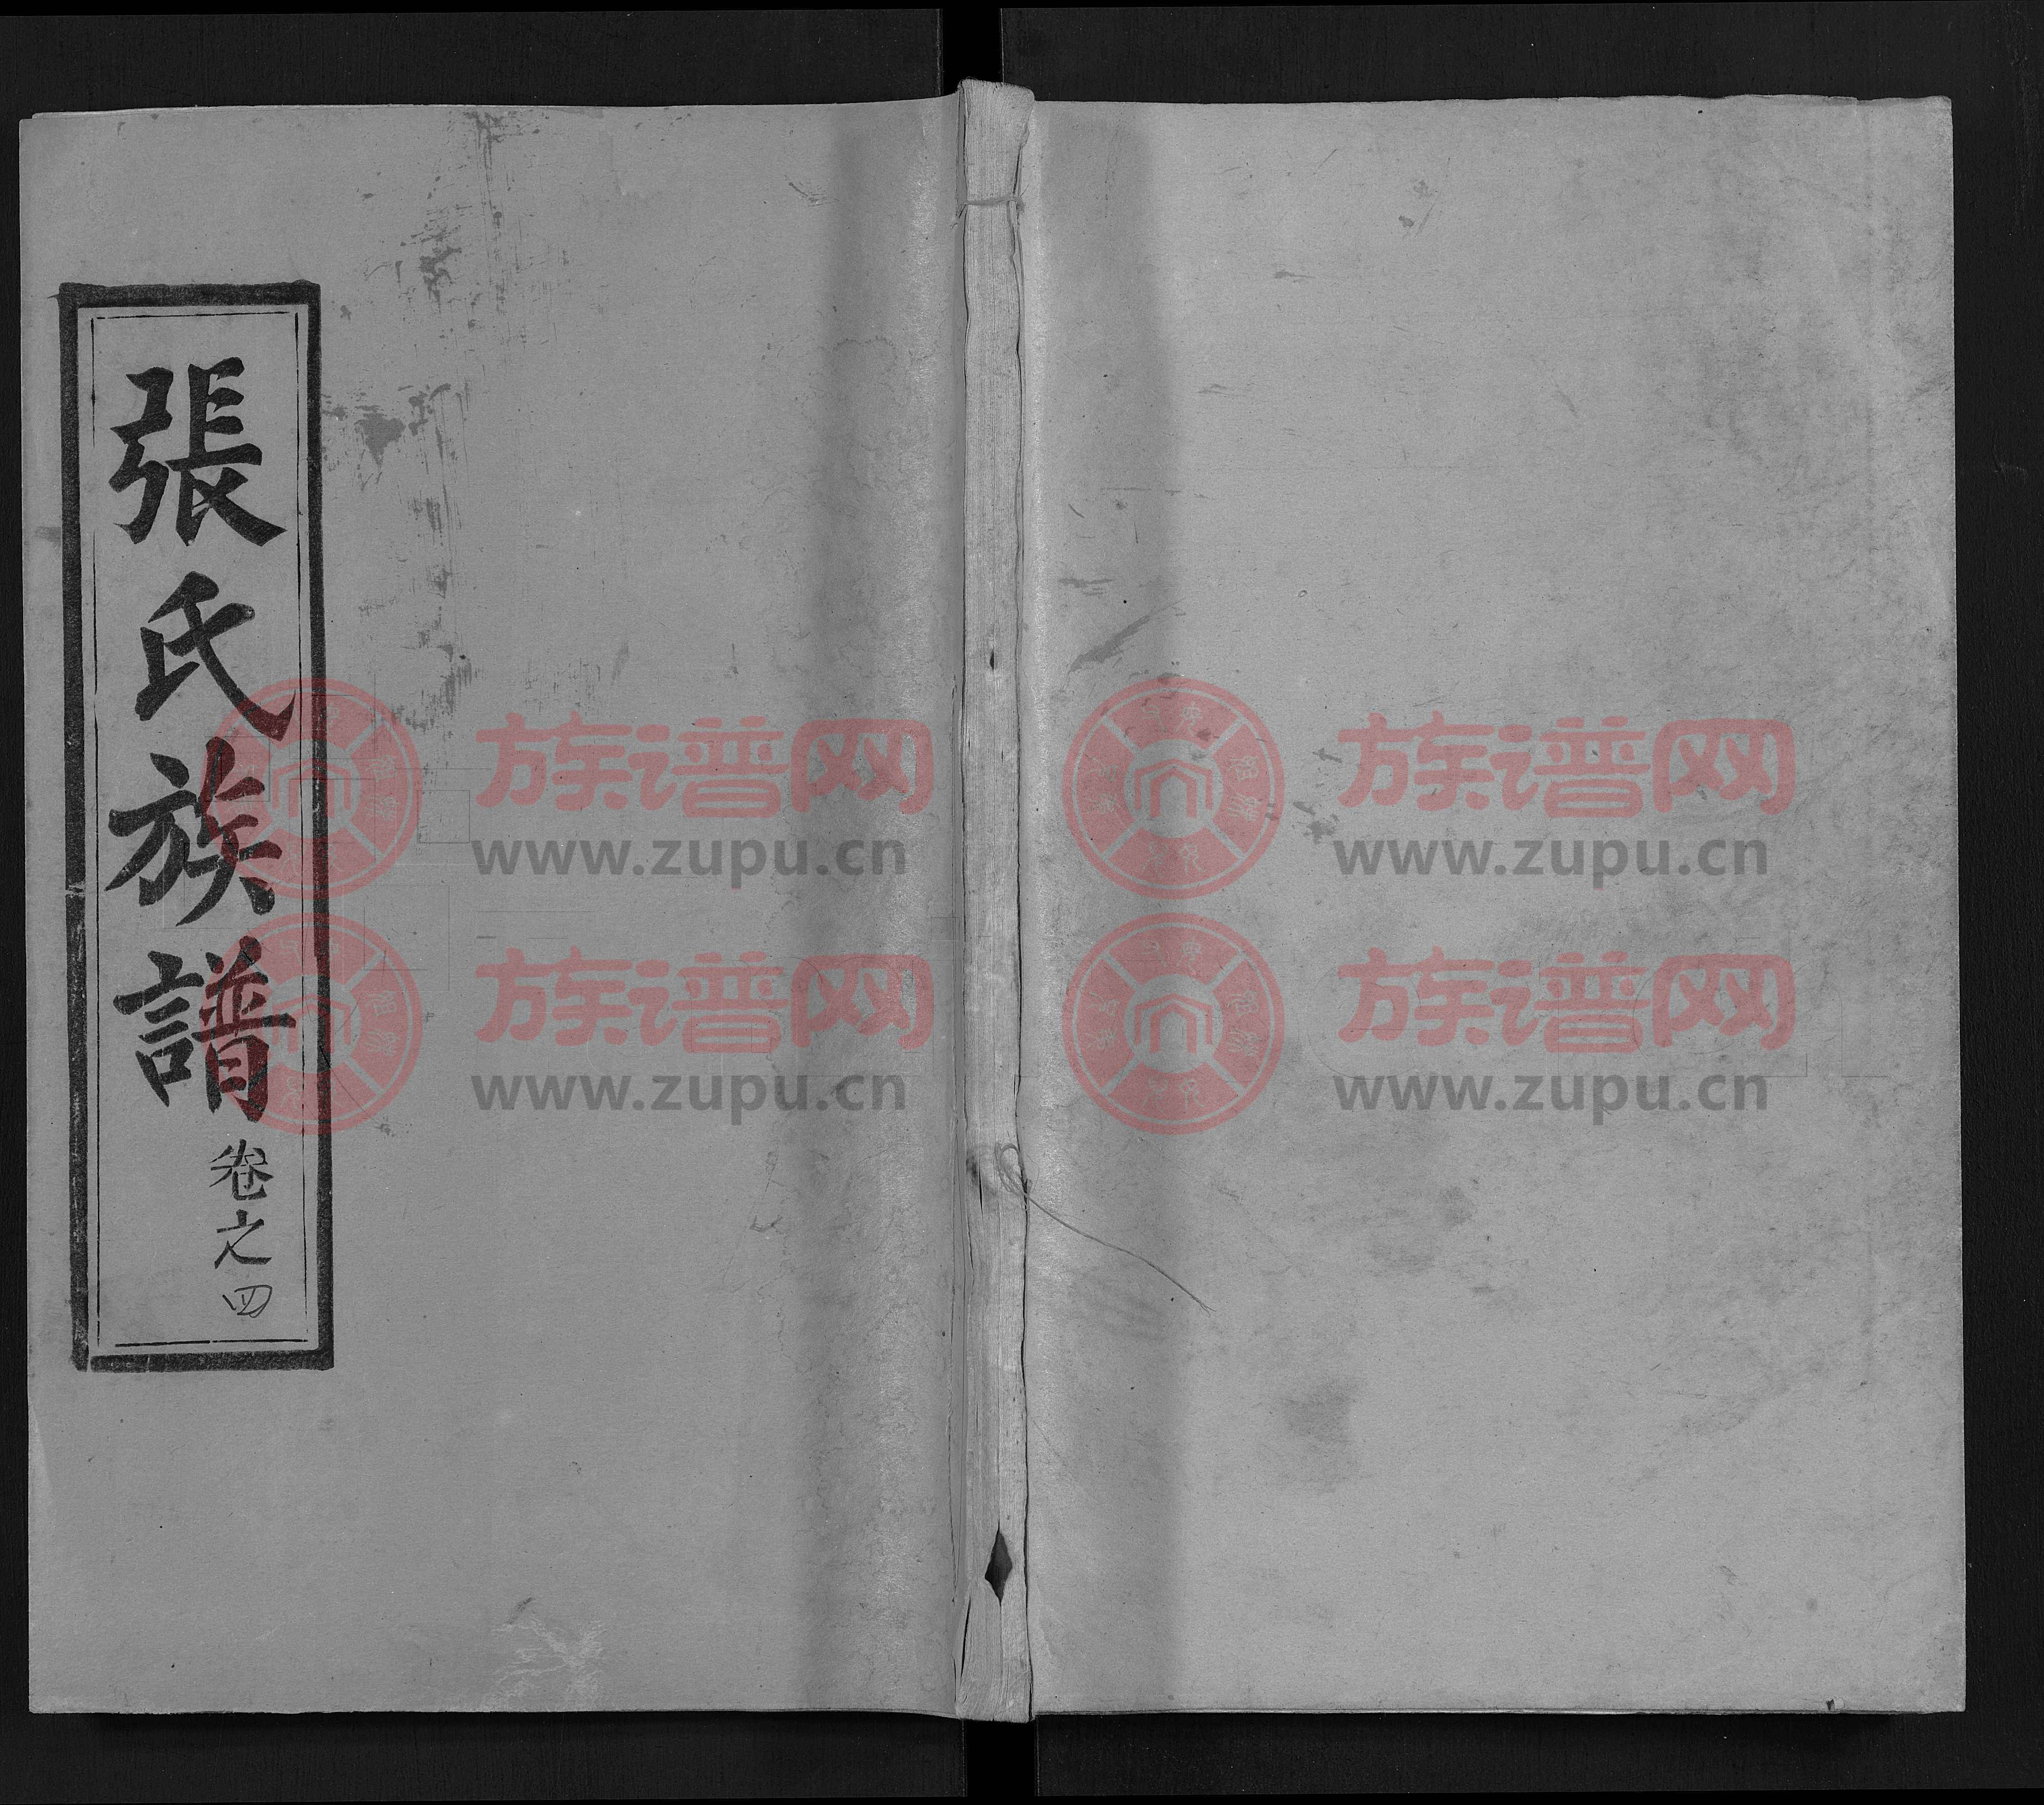 張氏族譜
卷之四
族谱网
www.zupu.cn
族谱网
www.zupu.cn
族谱网
www.zupu.cn
族谱网
www.zupu.cn